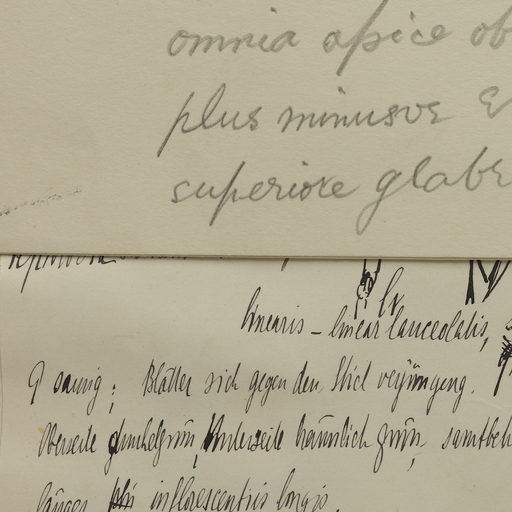 omnia apice ob
plus minusve
superiore glabr
linearis – linear lanceolatis,
Blätter sich gegen den Stiel verjüngeng.
Oberseite dunkelgrün, Unterseite bräunlich grün, samtbeh
länger inflorescentiis longis.